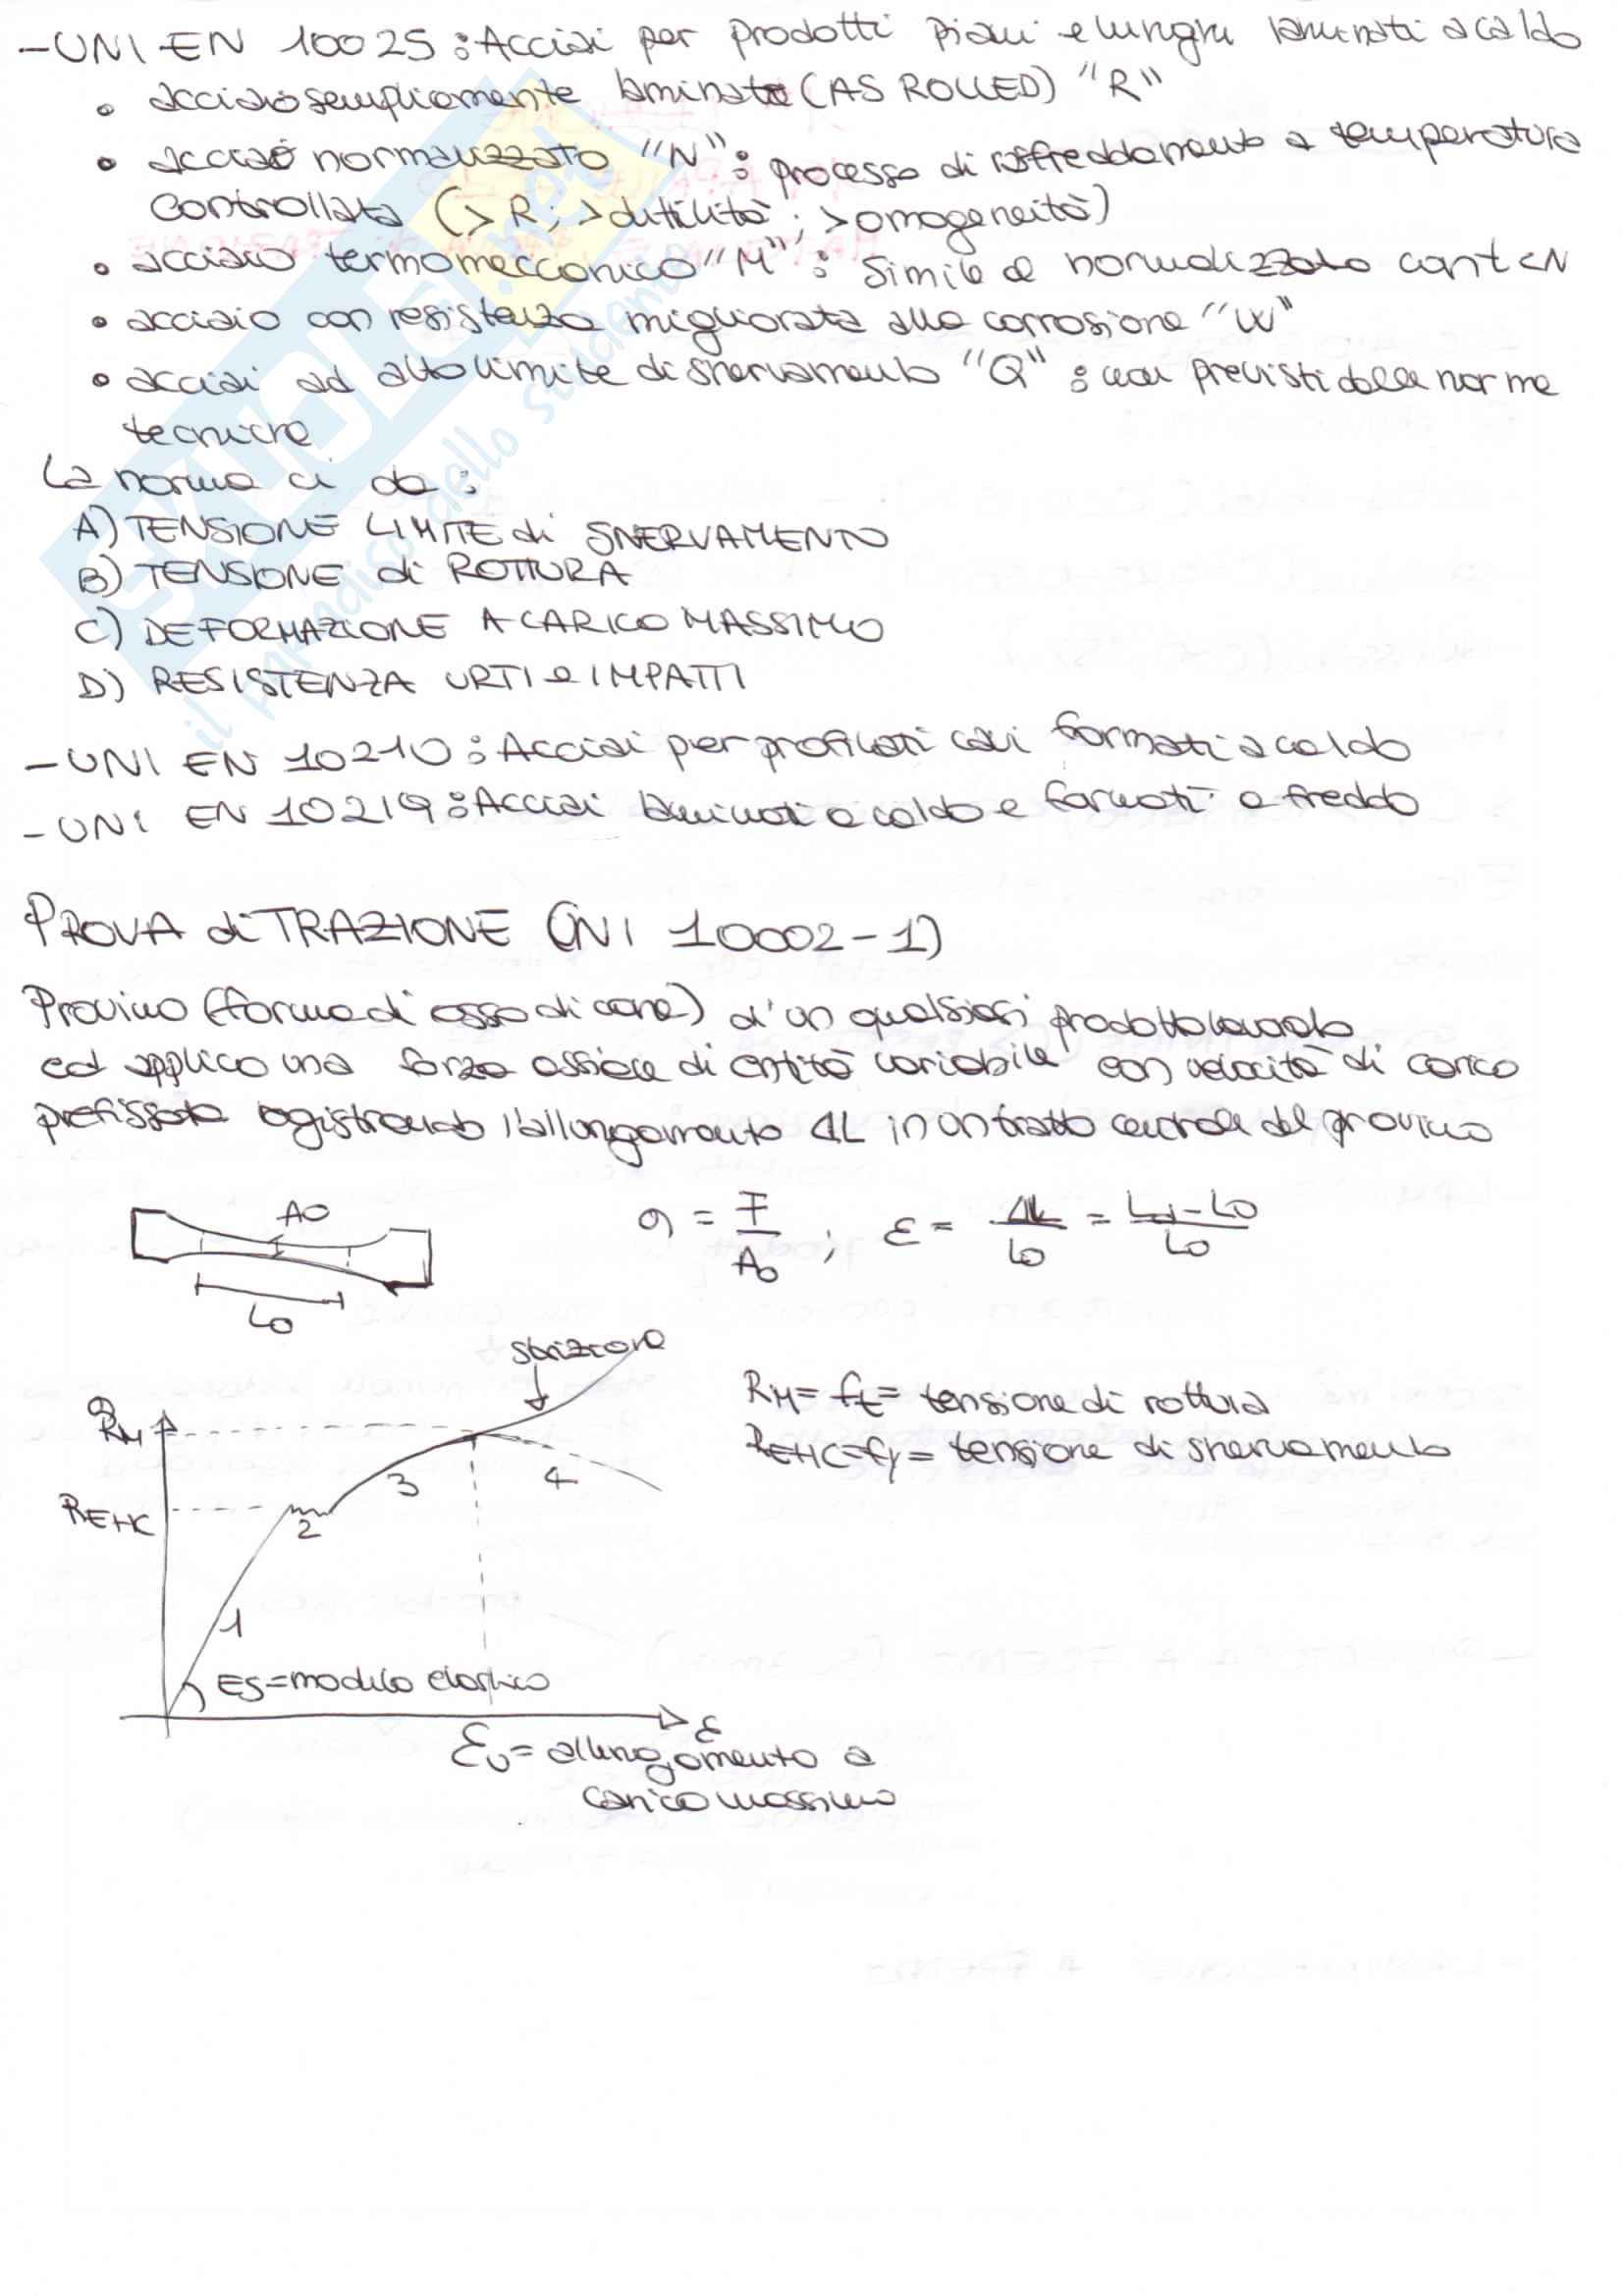 - UNI EN 10025 : Acciai per prodotti piani e lunghi laminati a caldo
• acciaio semplicemente laminato (AS ROLLED) "R"
• acciaio normalizzato "N" : processo di raffreddamento a temperatura
controllata (> R ; > duttilità ; > omogeneità)
• acciaio termomeccanico "M" : simile al normalizzato con t < N
• acciaio con resistenza migliorata alla corrosione "W"
• acciai ad alto limite di snervamento "Q" : non previsti dalle norme
tecniche
La norma ci da :
A) TENSIONE LIMITE di SNERVAMENTO
B) TENSIONE di ROTTURA
C) DEFORMAZIONE A CARICO MASSIMO
D) RESISTENZA URTI e IMPATTI
- UNI EN 10210 : Acciai per profilati cavi formati a caldo
- UNI EN 10219 : Acciai laminati a caldo e formati a freddo
PROVA di TRAZIONE (UNI 10002-1)
Provino (forma di osso di cane) d'un qualsiasi prodotto lavorato
ed applico una forza assiale di entità variabile con velocità di carico
prefissata registrando l'allungamento ΔL in un tratto centrale del provino
A0
L0
σ = F/A0 ; ε = ΔL/L0 = (Ld-L0)/L0
strizione
σ
RM
REHC
1
2
3
4
ES = modulo elastico
ε
RM = ft = tensione di rottura
REHC = fy = tensione di snervamento
εu = allungamento a
carico massimo
SKUOLA.net
il paradiso dello studente